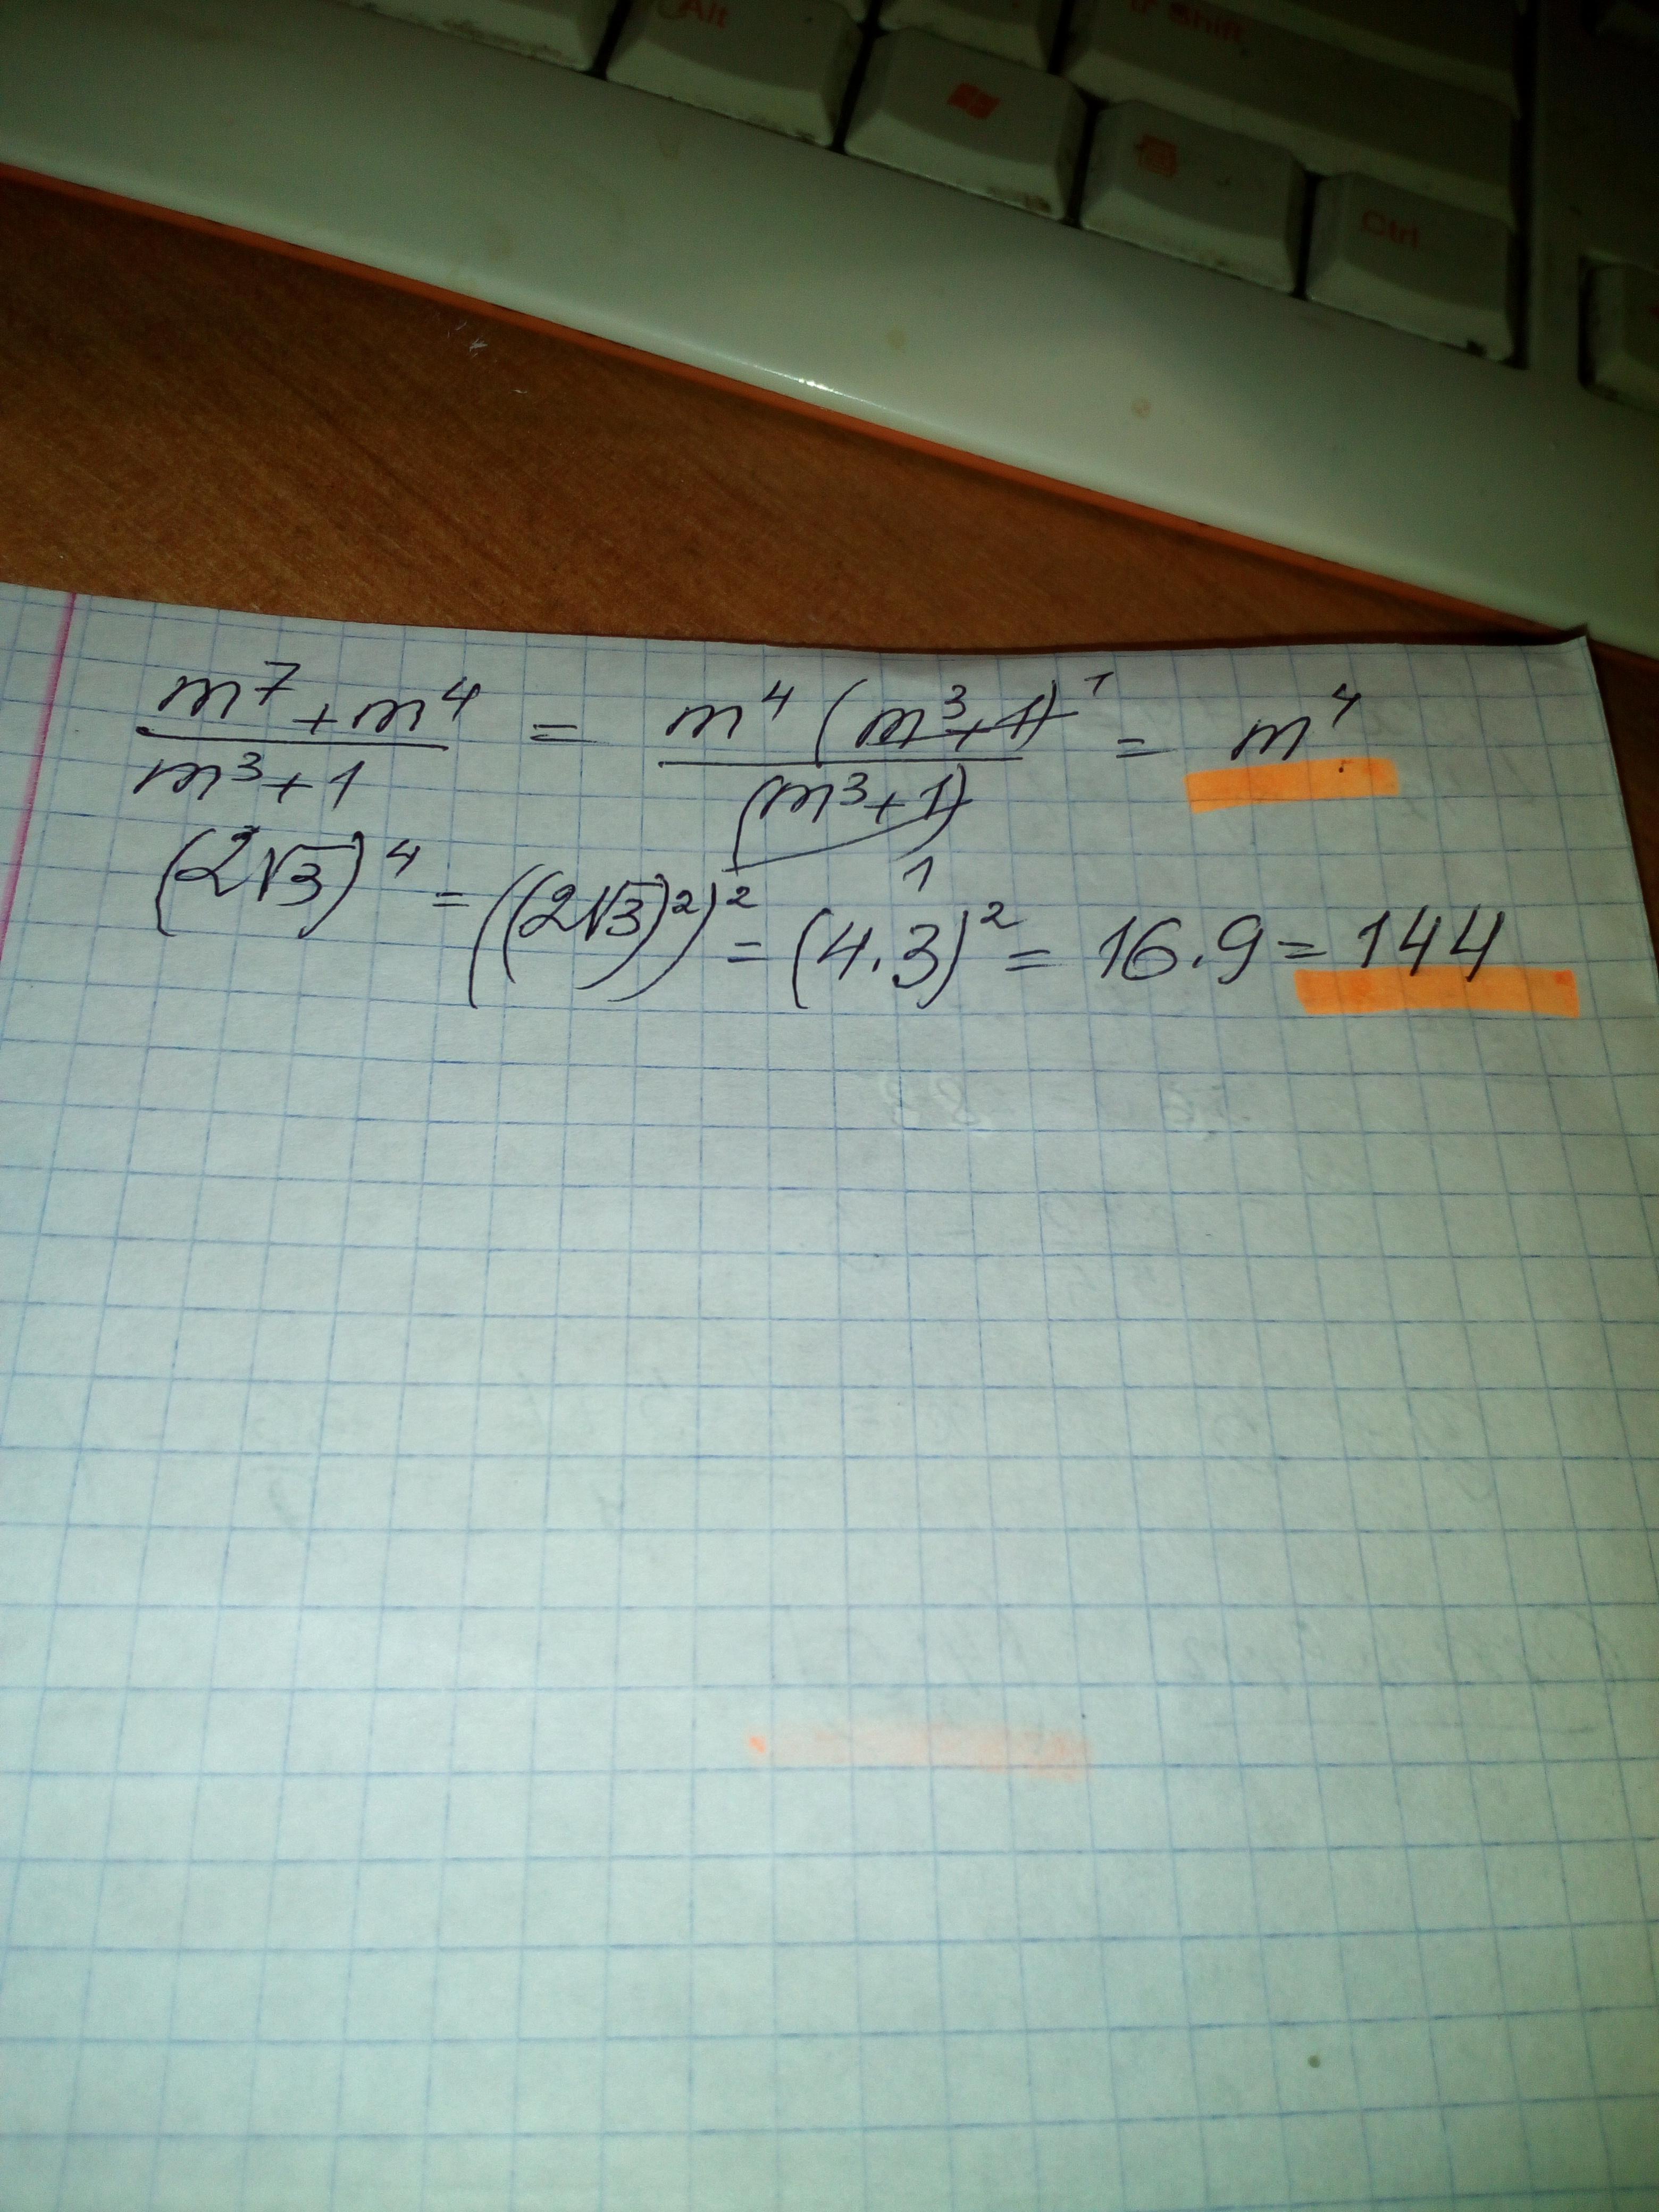 Alt
Shift
Ctrl
m⁷+m⁴/m³+1 = m⁴(m³+1)¹/(m³+1) 1 = m⁴
(2√3)⁴ = ((2√3)²)² = (4.3)² = 16.9 = 144